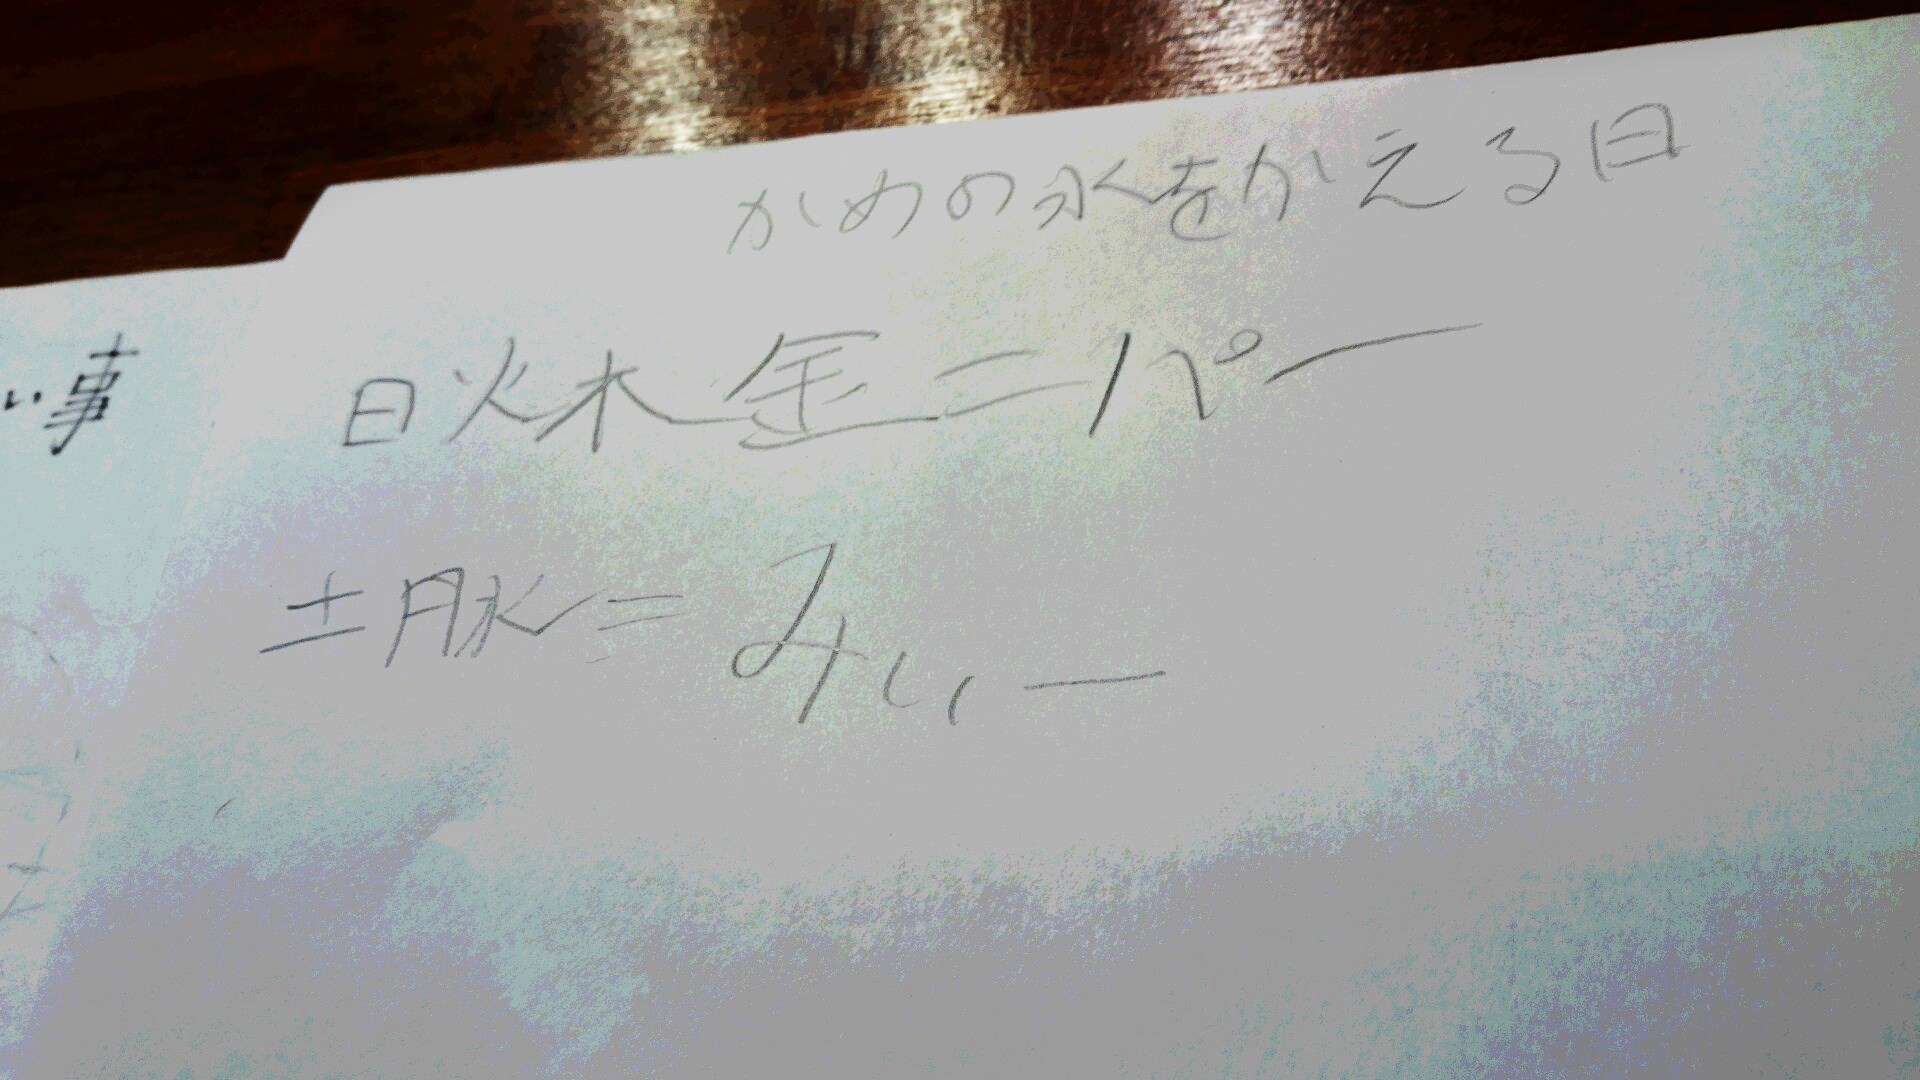 かめの水をかえる日
い事
日火木金=パパー
土月水=みぃー